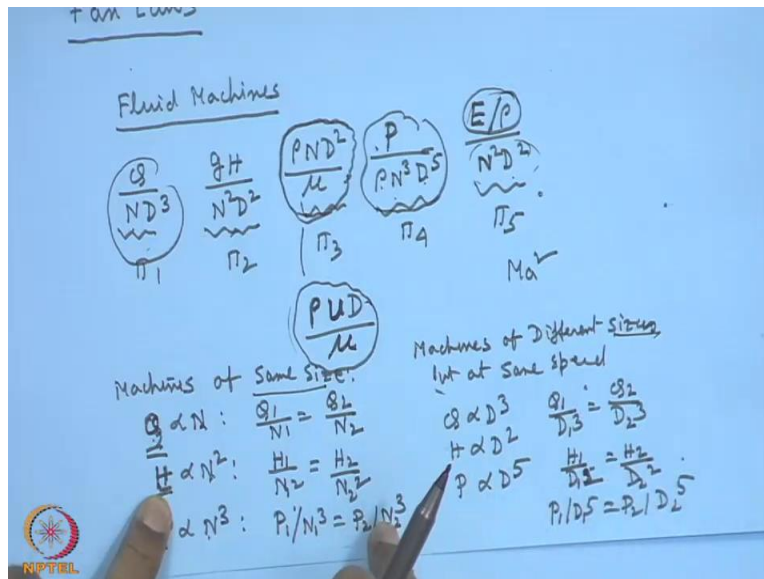 Fan Laws
Fluid Machines
Q/ND³ gH/N²D² ρND²/μ P/ρN³D⁵ E/ρ/N²D²
π₁ π₂ π₃ π₄ π₅
Ma²
ρUD/μ
Machines of Same Size:
Q ∝ N : Q₁/N₁ = Q₂/N₂
H ∝ N² : H₁/N₁² = H₂/N₂²
∝ N³ : P₁/N₁³ = P₂/N₂³
Machines of Different sizes
but at same speed
Q ∝ D³ Q₁/D₁³ = Q₂/D₂³
H ∝ D² H₁/D₁² = H₂/D₂²
P ∝ D⁵ P₁/D₁⁵ = P₂/D₂⁵
NPTEL